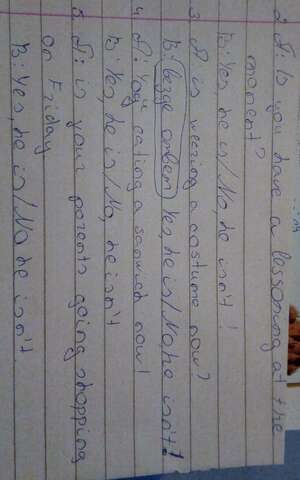 2 A: Do you have a lessoning at the
moment?
B: Yes he is/No, he isn't!
3 A is weering a costume now?
B: Yes, he is/No he isn't!
4 A: You eating a sanwich now!
B: Yes, he is/No, he isn't
5 A: is your parents going shopping
on Friday
B: Yes, he is/No he isn't.